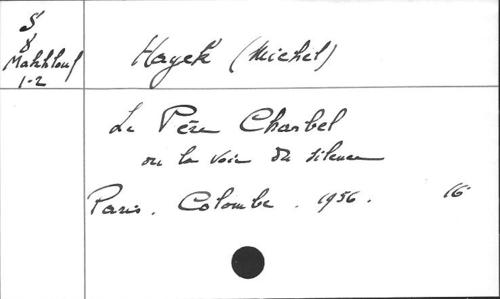 S
8
Makhlouf
1-2
Hayek (Michel)
Le Père Charbel
ou la voix du silence
Paris. Colombe. 1956. 16°